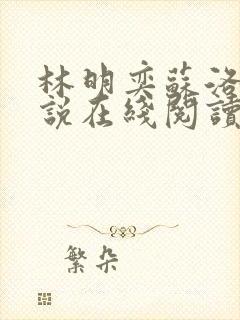 林明奕蘇洛
說在綫閱讀
繁朵